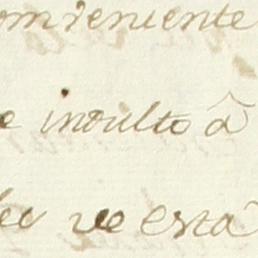 conveniente
e indulto â
ve esta